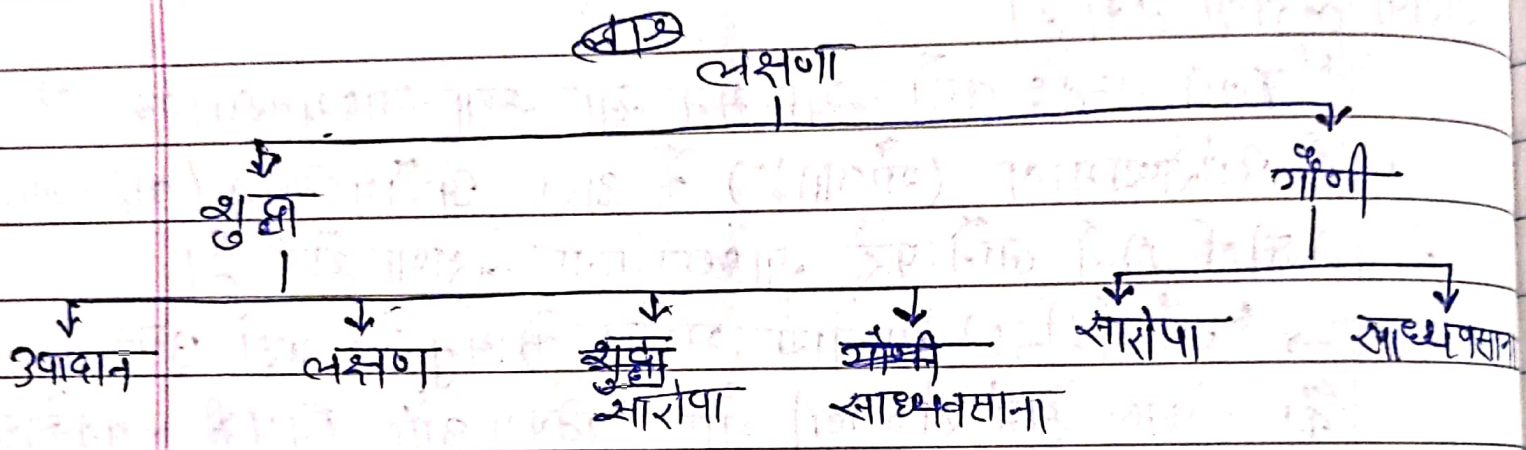 लक्षणा
शुद्धा गौणी
उपादान लक्षण सारोपा साध्यवसाना सारोपा साध्यवसाना